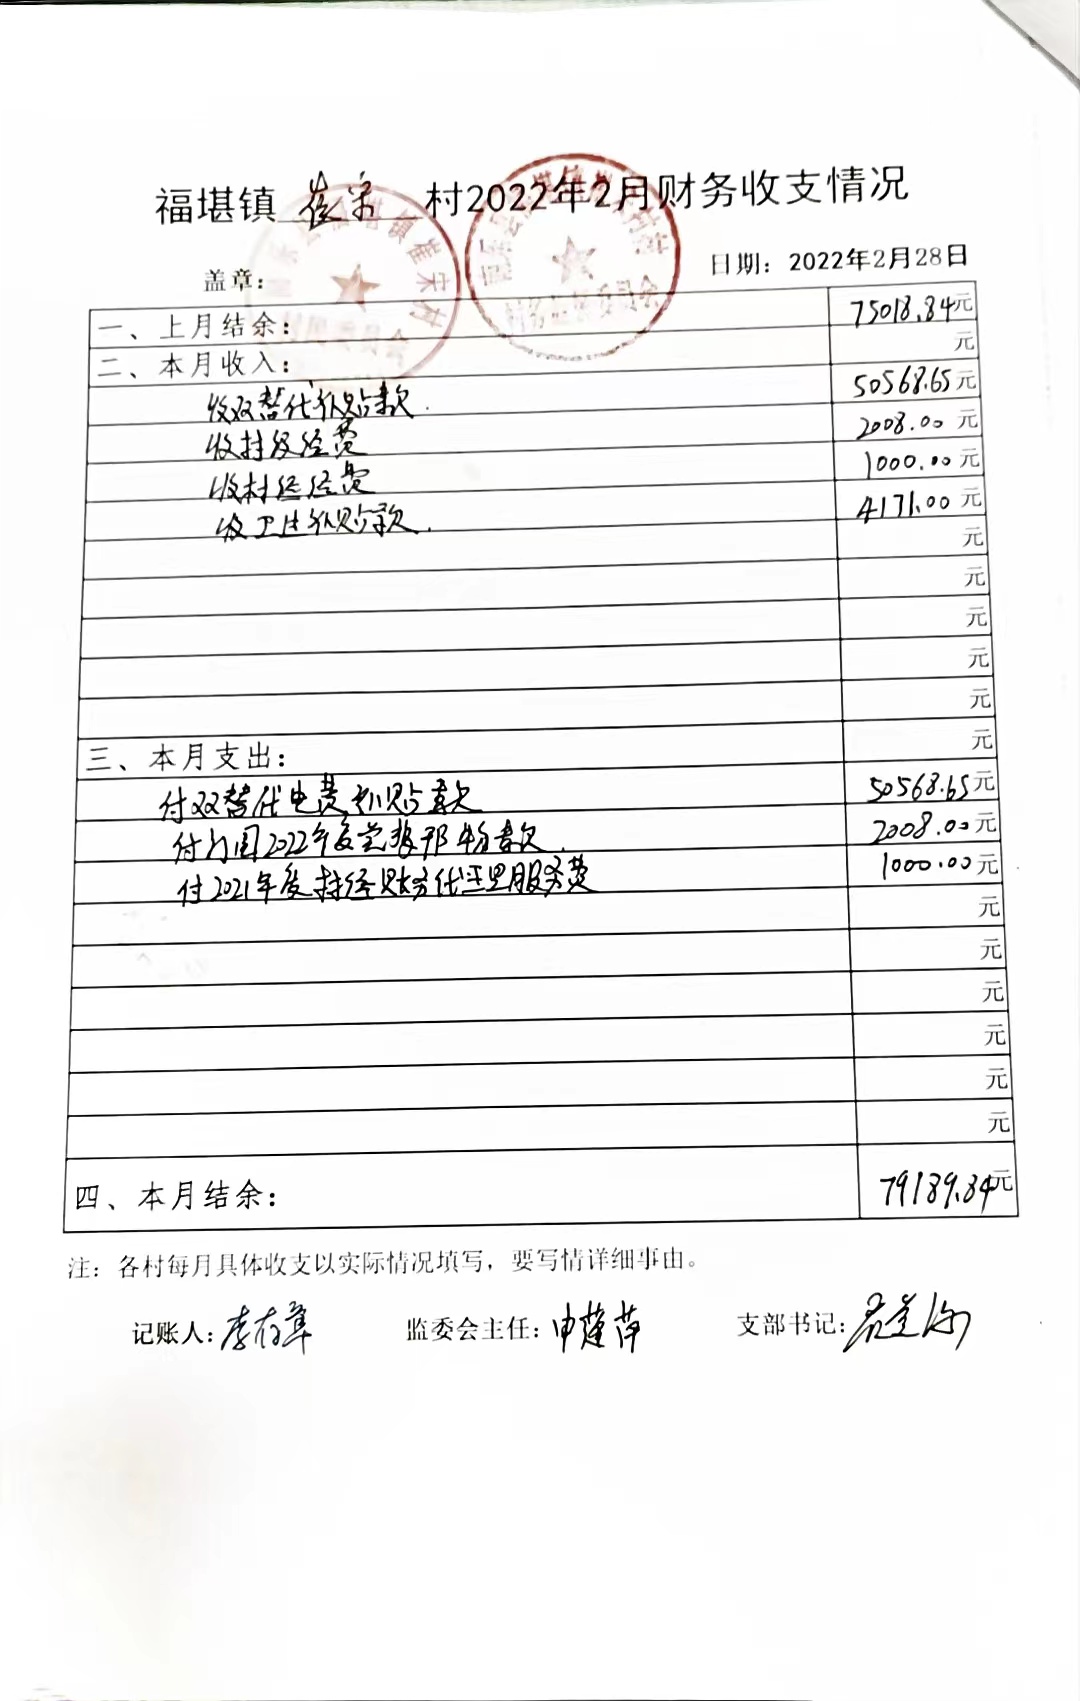 福堪镇 崔宋 村2022年2月财务收支情况
盖章： 日期：2022年2月28日
一、上月结余： 75018.84元
二、本月收入： 元
收双替代补贴款. 50568.65元
收村级经费 2008.00元
收村经经费 1000.00元
收卫生补贴款. 4171.00元
元
元
元
元
元
三、本月支出： 元
付双替代电费补贴款 50568.65元
付订阅2022年度党报 款. 2008.00元
付2021年度村经财务代理服务费 1000.00元
元
元
元
元
元
元
四、本月结余： 79189.84元
注：各村每月具体收支以实际情况填写，要写情详细事由。
记账人：李存章 监委会主任：申莲萍 支部书记：